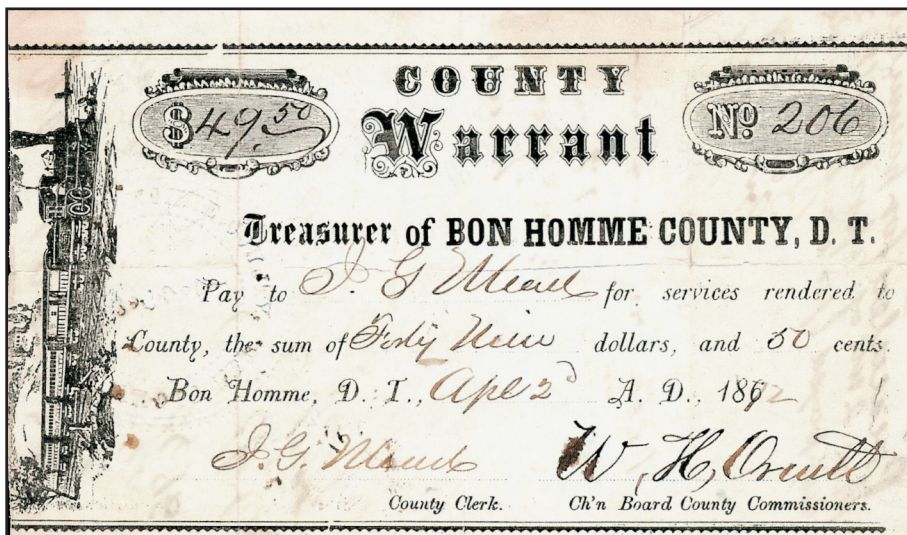 COUNTY
$49.50 Warrant No 206
Treasurer of BON HOMME COUNTY, D. T.
Pay to J. G. Mead for services rendered to
County, the sum of Forty Nine dollars, and 50 cents.
Bon Homme, D. T., Apl 2d A. D., 1862
J. G. Mead W, H,
County Clerk. Ch'n Board County Commissioners.